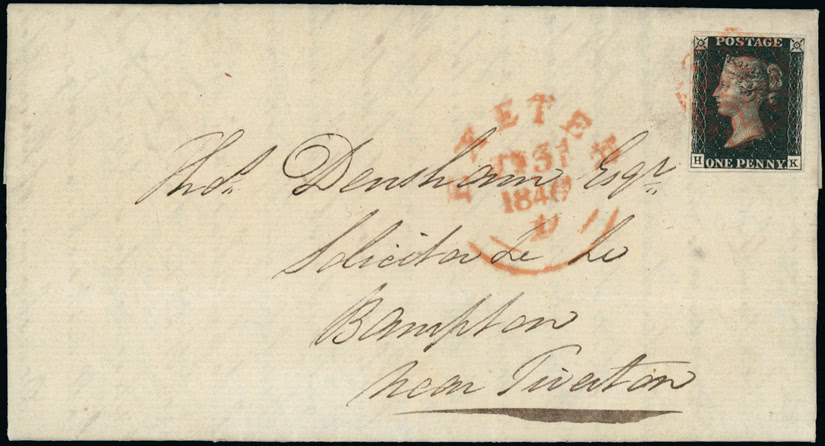 POSTAGE
H ONE PENNY K
EXETER
31
1840
D
Thos. Densham Esqr.
Solicitor &c &c
Bampton
near Tiverton